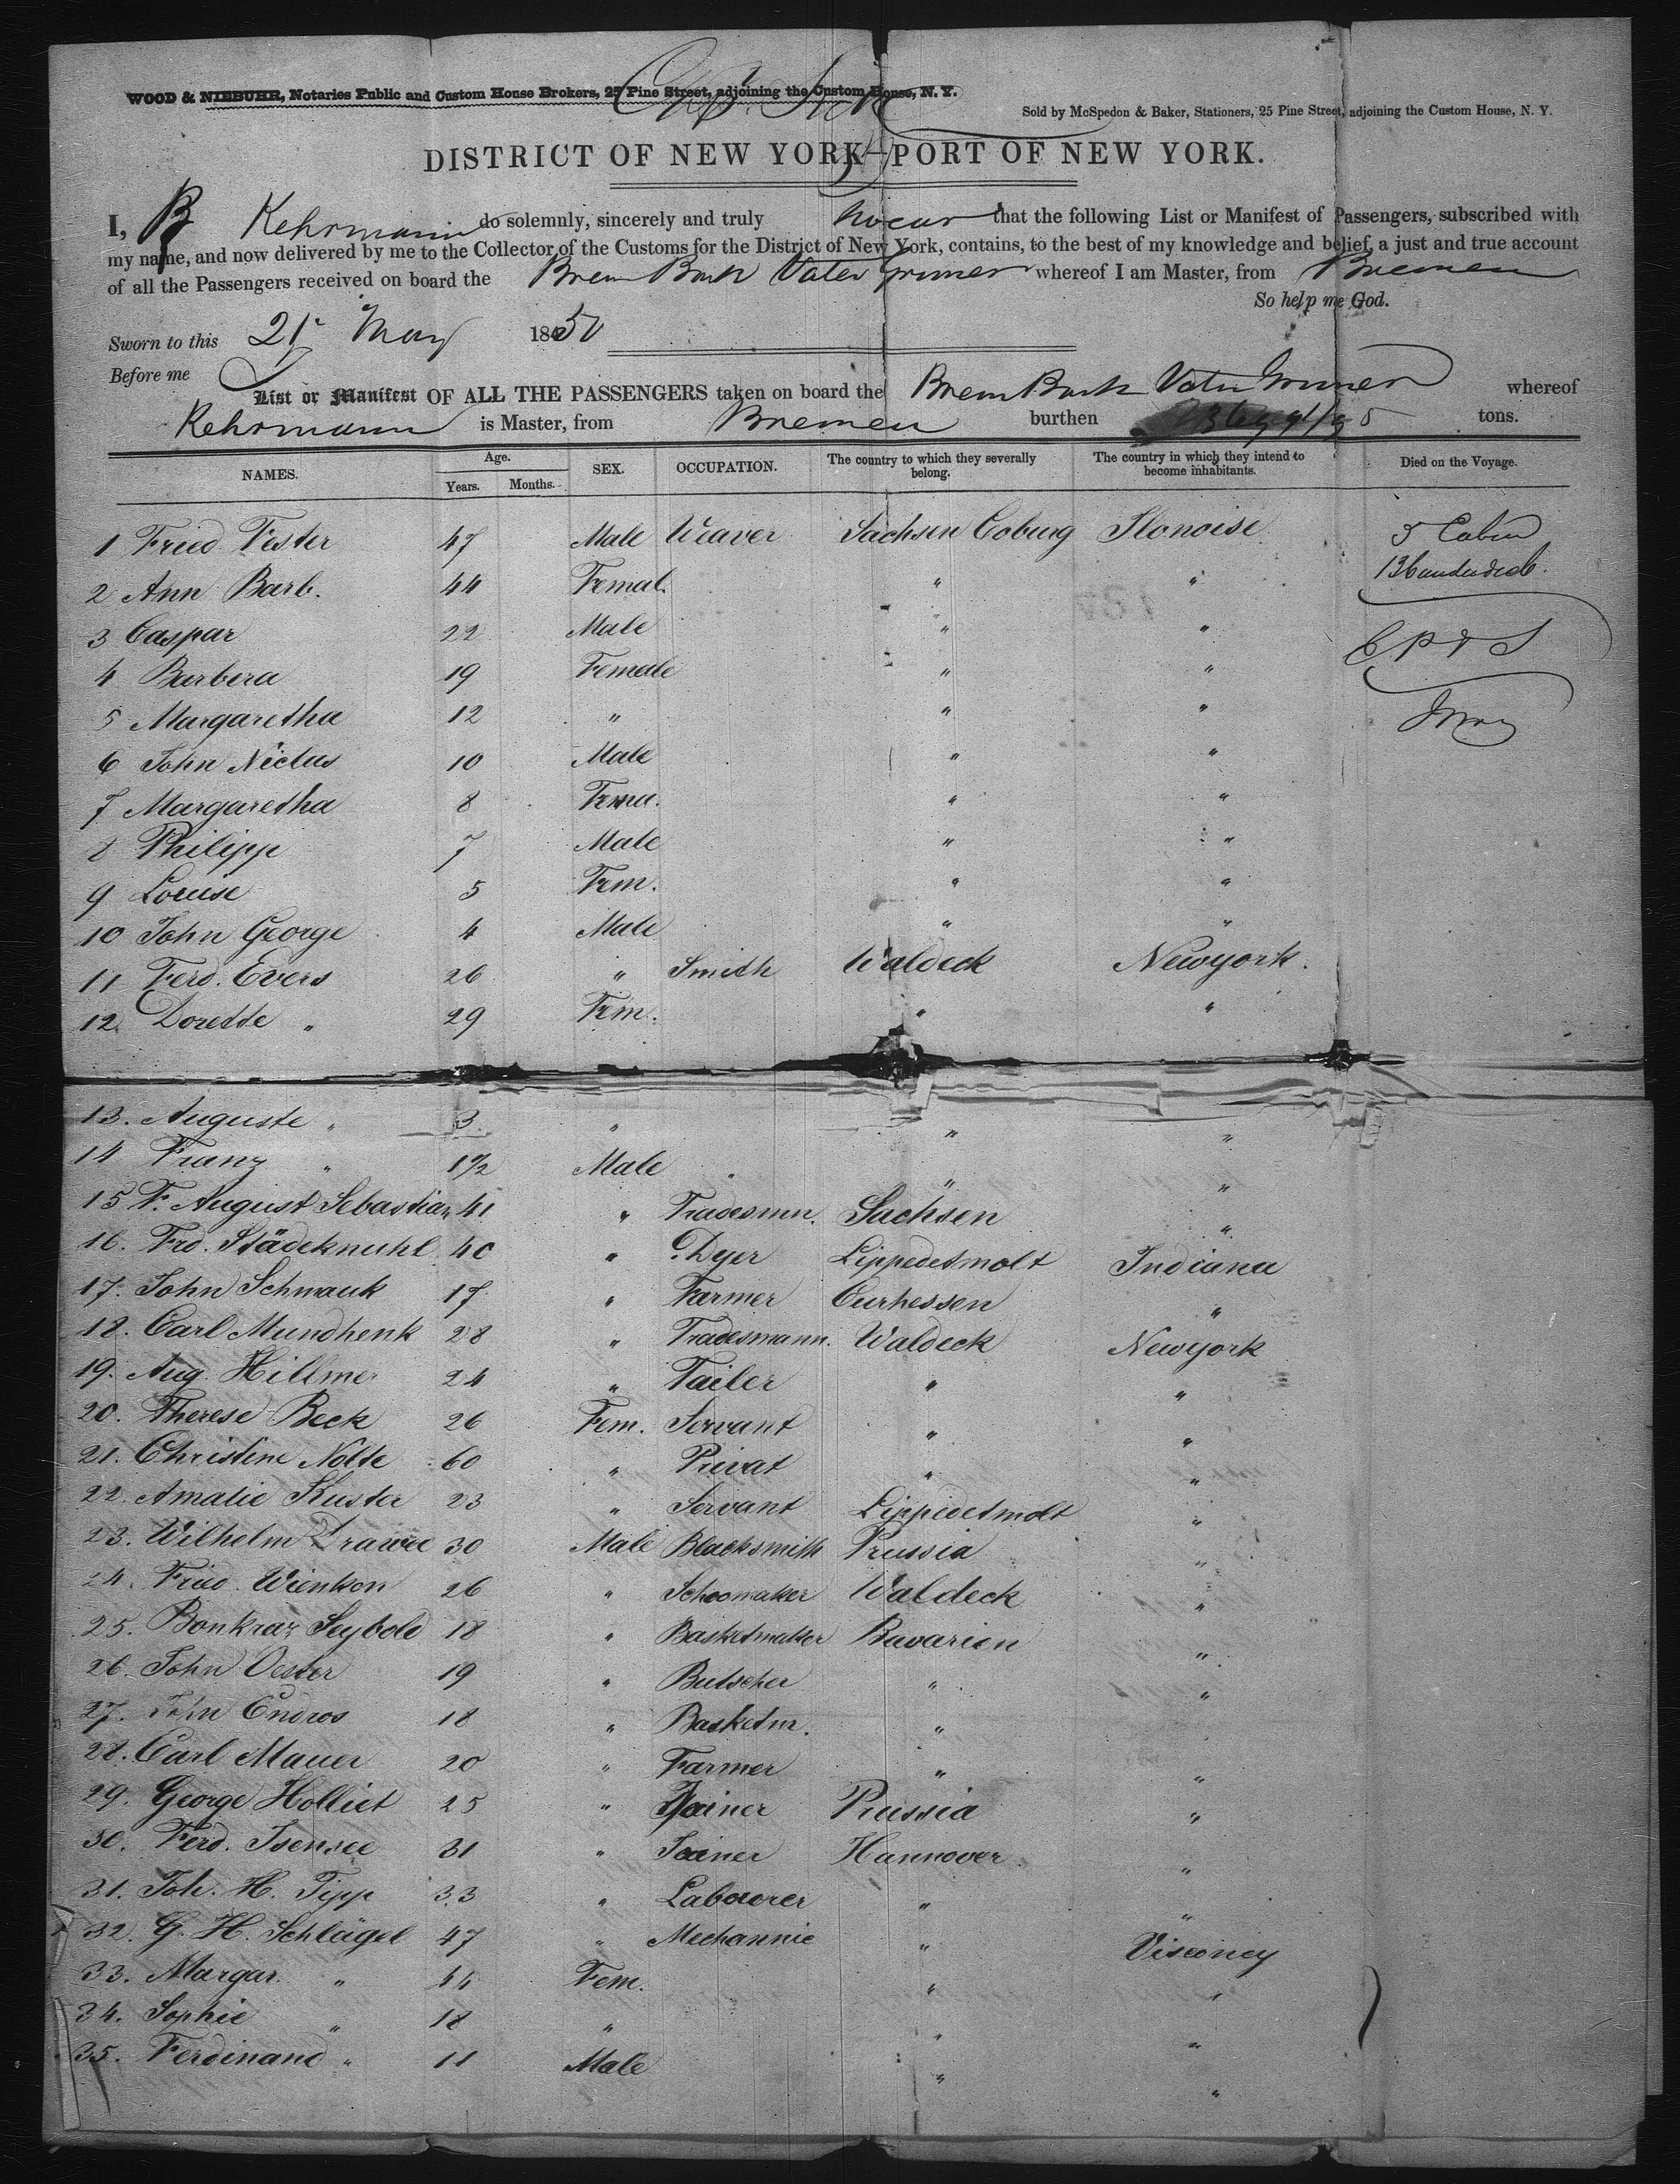 WOOD & NIEBUHR, Notaries Public and Custom House Brokers, 25 Pine Street, adjoining the Custom House, N. Y.
Sold by McSpedon & Baker, Stationers, 25 Pine Street, adjoining the Custom House, N. Y.
DISTRICT OF NEW YORK—PORT OF NEW YORK.
I, B Kehrmann do solemnly, sincerely and truly swear that the following List or Manifest of Passengers, subscribed with
my name, and now delivered by me to the Collector of the Customs for the District of New York, contains, to the best of my knowledge and belief, a just and true account
of all the Passengers received on board the Brem Bark Vater Gruner whereof I am Master, from Bremen
So help me God.
Sworn to this 21 May 1850
Before me
List or Manifest OF ALL THE PASSENGERS taken on board the Brem Bark Vater Gruner whereof
Kehrmann is Master, from Bremen burthen tons.
NAMES. Age. Years. Months. SEX. OCCUPATION. The country to which they severally belong. The country in which they intend to become inhabitants. Died on the Voyage.
1 Fried Vester 47 Male Weaver Sachsen Coburg Ilonoise 5 Cabin
2 Ann Barb. 44 Femal. " "
3 Caspar 22 Male " "
4 Barbera 19 Female " "
5 Margaretha 12 " " "
6 John Niclus 10 Male " "
7 Margaretha 8 Fema. " "
8 Philipp 7 Male " "
9 Louise 5 Fem. " "
10 John George 4 Male " "
11 Ferd. Evers 26 " Smith Waldeck Newyork.
12. Dorette " 29 Fem. " "
13. Auguste " 3 " " "
14 Franz " 1 1/2 Male " "
15 F. August Sebastian 41 " Tradesmn. Sachsen "
16. Frd. Städeknuhl 40 " Dyer Lippedetmolt Indiana
17. John Schmauk 17 " Farmer Curhessen "
18. Carl Mundhenk 28 " Tradesmann. Waldeck Newyork
19. Aug. Hillmer 24 " Tailer " "
20. Therese Beck 26 Fem. Servant " "
21. Christine Nolte 60 " Privat " "
22. Amalie Kuster 23 " Servant Lippedetmolt "
23. Wilhelm 30 Male Blacksmith Prussia "
24. Fried. Wienken 26 " Schoomaker Waldeck "
25. Bonkraz Seybold 18 " Basketmaker Bavarien "
26. John Oester 19 " Butscher " "
27. John Endros 18 " Basketm. "
28. Carl Mauer 20 " Farmer " "
29. George Holliet 25 " Joiner Prussia "
30. Ferd. Isensee 31 " Joiner Hannover "
31. Joh. H. Tipp 33 " Labourer " "
32. G. H. Schlägel 47 " Mechannic " Visconcy
33. Margar. " 44 Fem. " "
34. Sophie " 18 " " "
35. Ferdinand " 11 Male " "